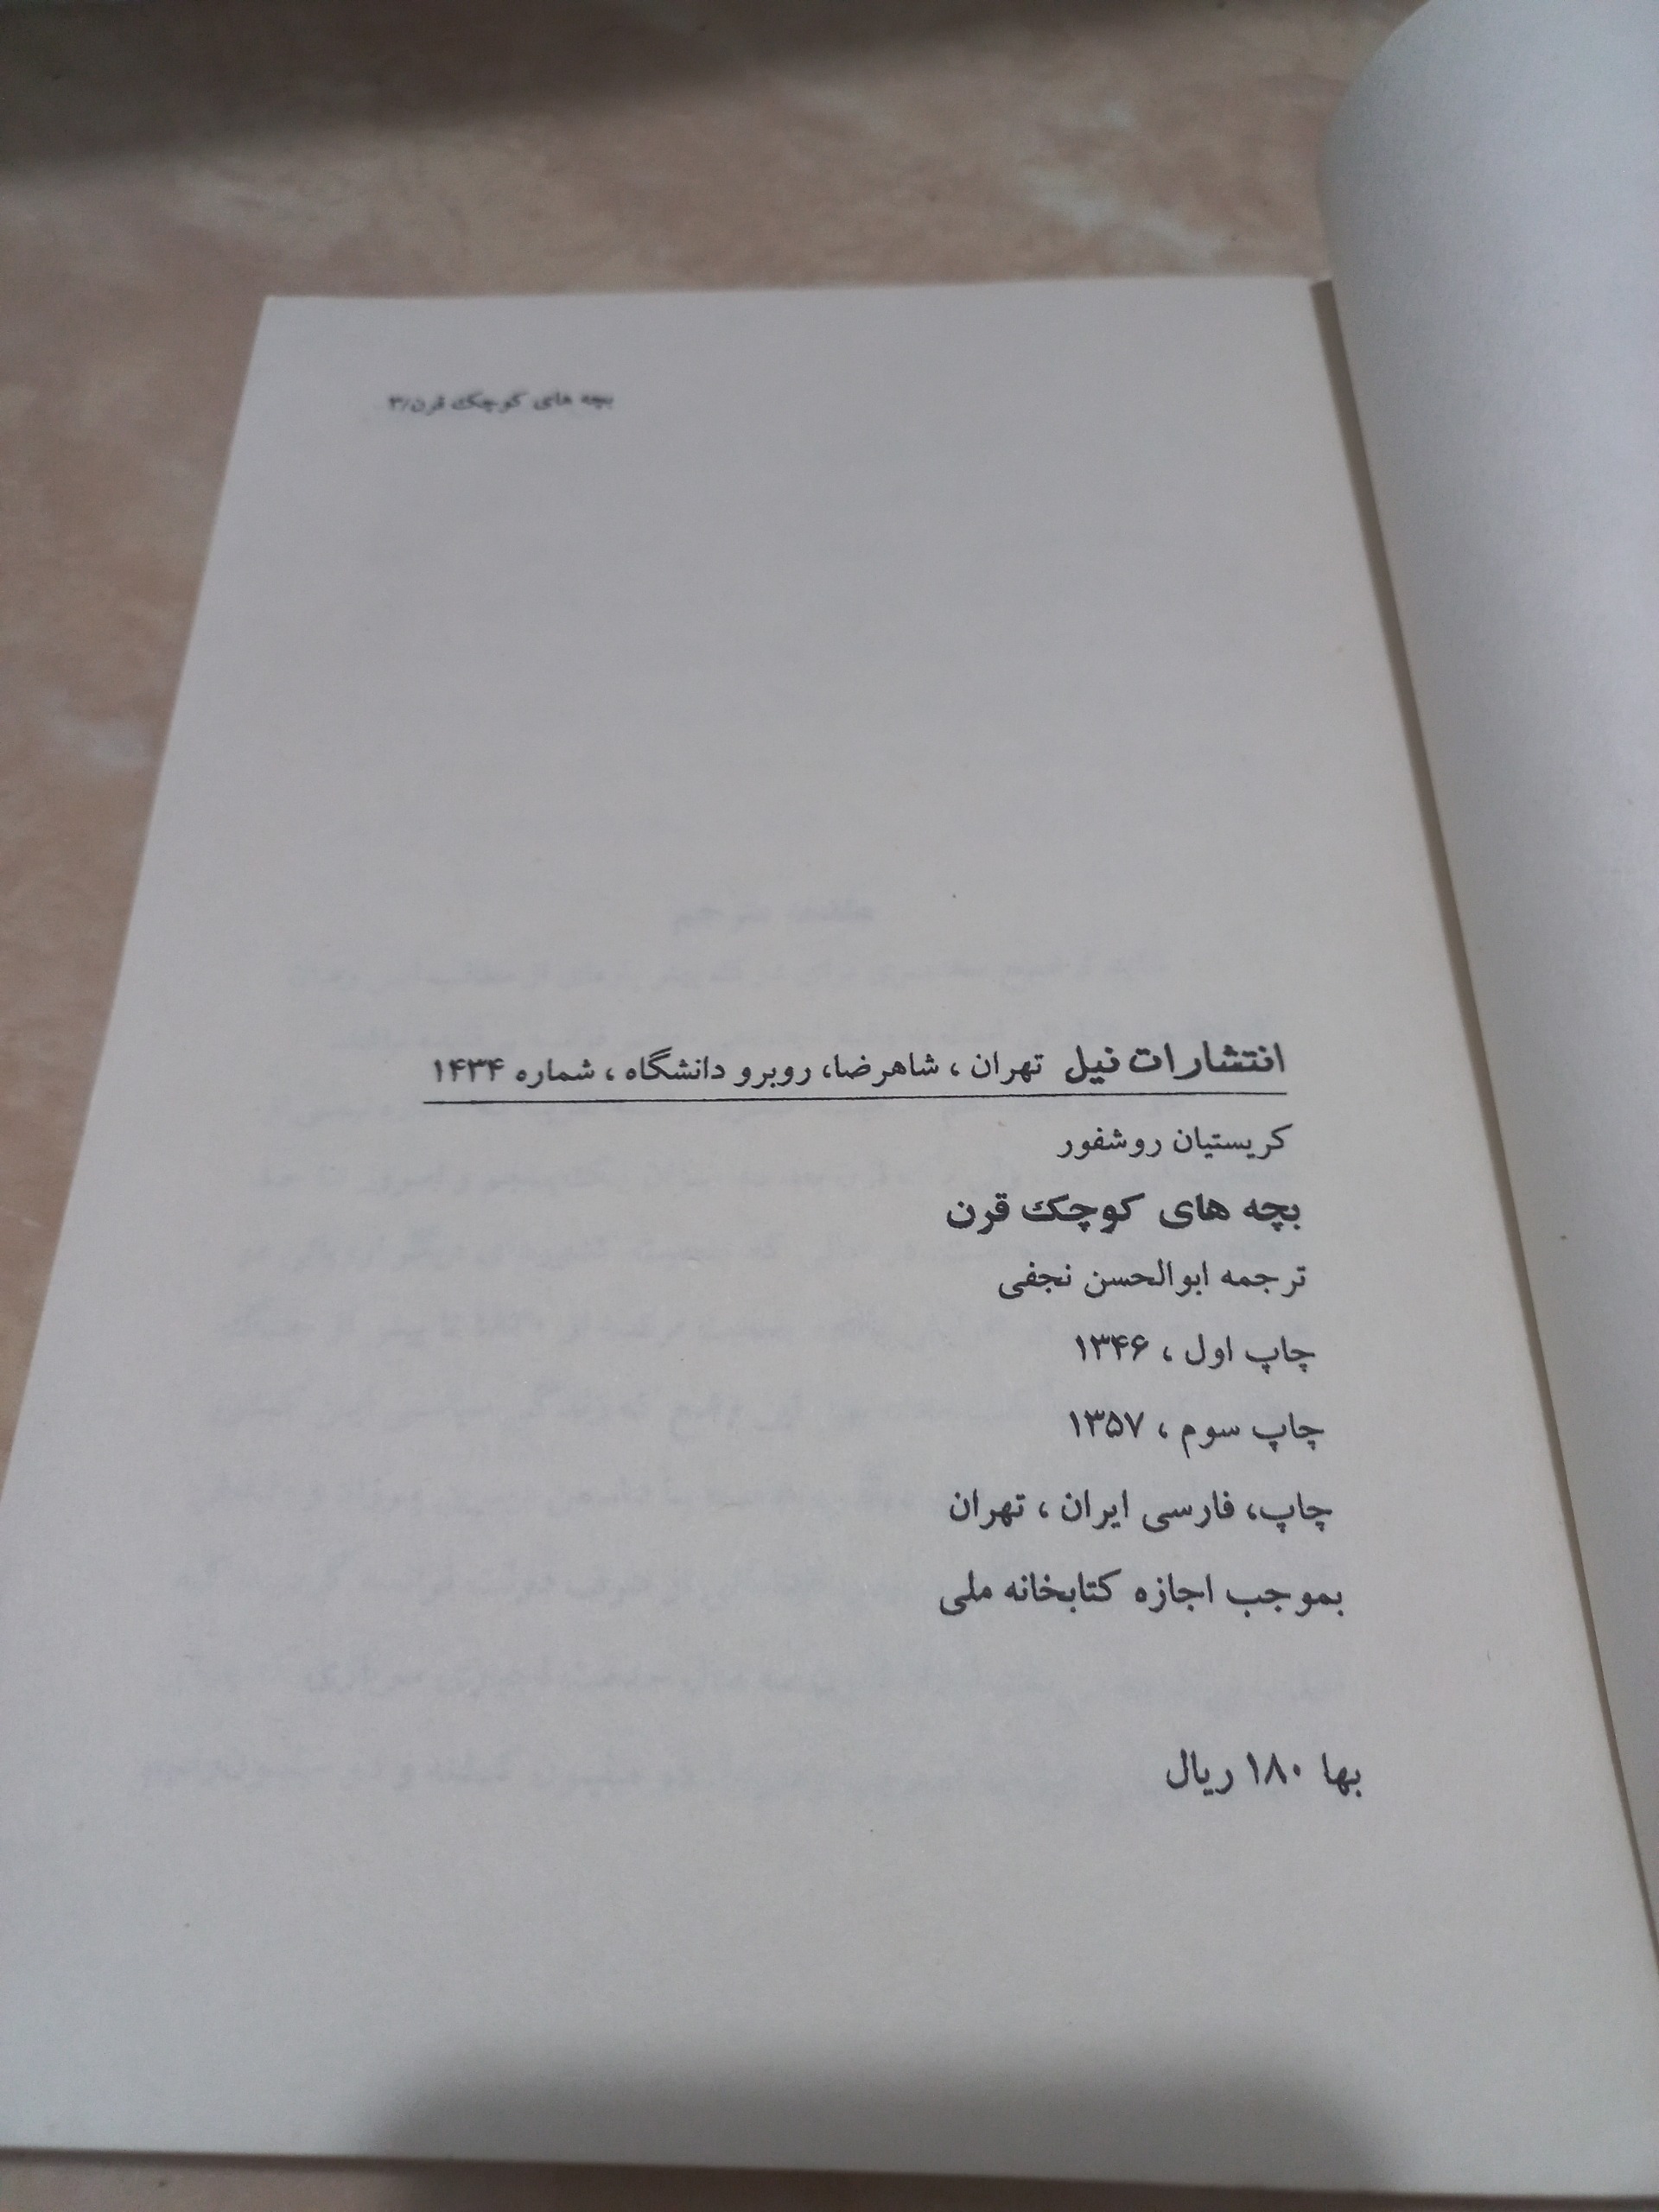 بچه های کوچک قرن/۳
انتشارات نیل تهران ، شاهرضا، روبرو دانشگاه ، شماره ۱۴۳۴
کریستیان روشفور
بچه های کوچک قرن
ترجمه ابوالحسن نجفی
چاپ اول ، ۱۳۴۶
چاپ سوم ، ۱۳۵۷
چاپ، فارسی ایران ، تهران
بموجب اجازه کتابخانه ملی
بها ۱۸۰ ریال